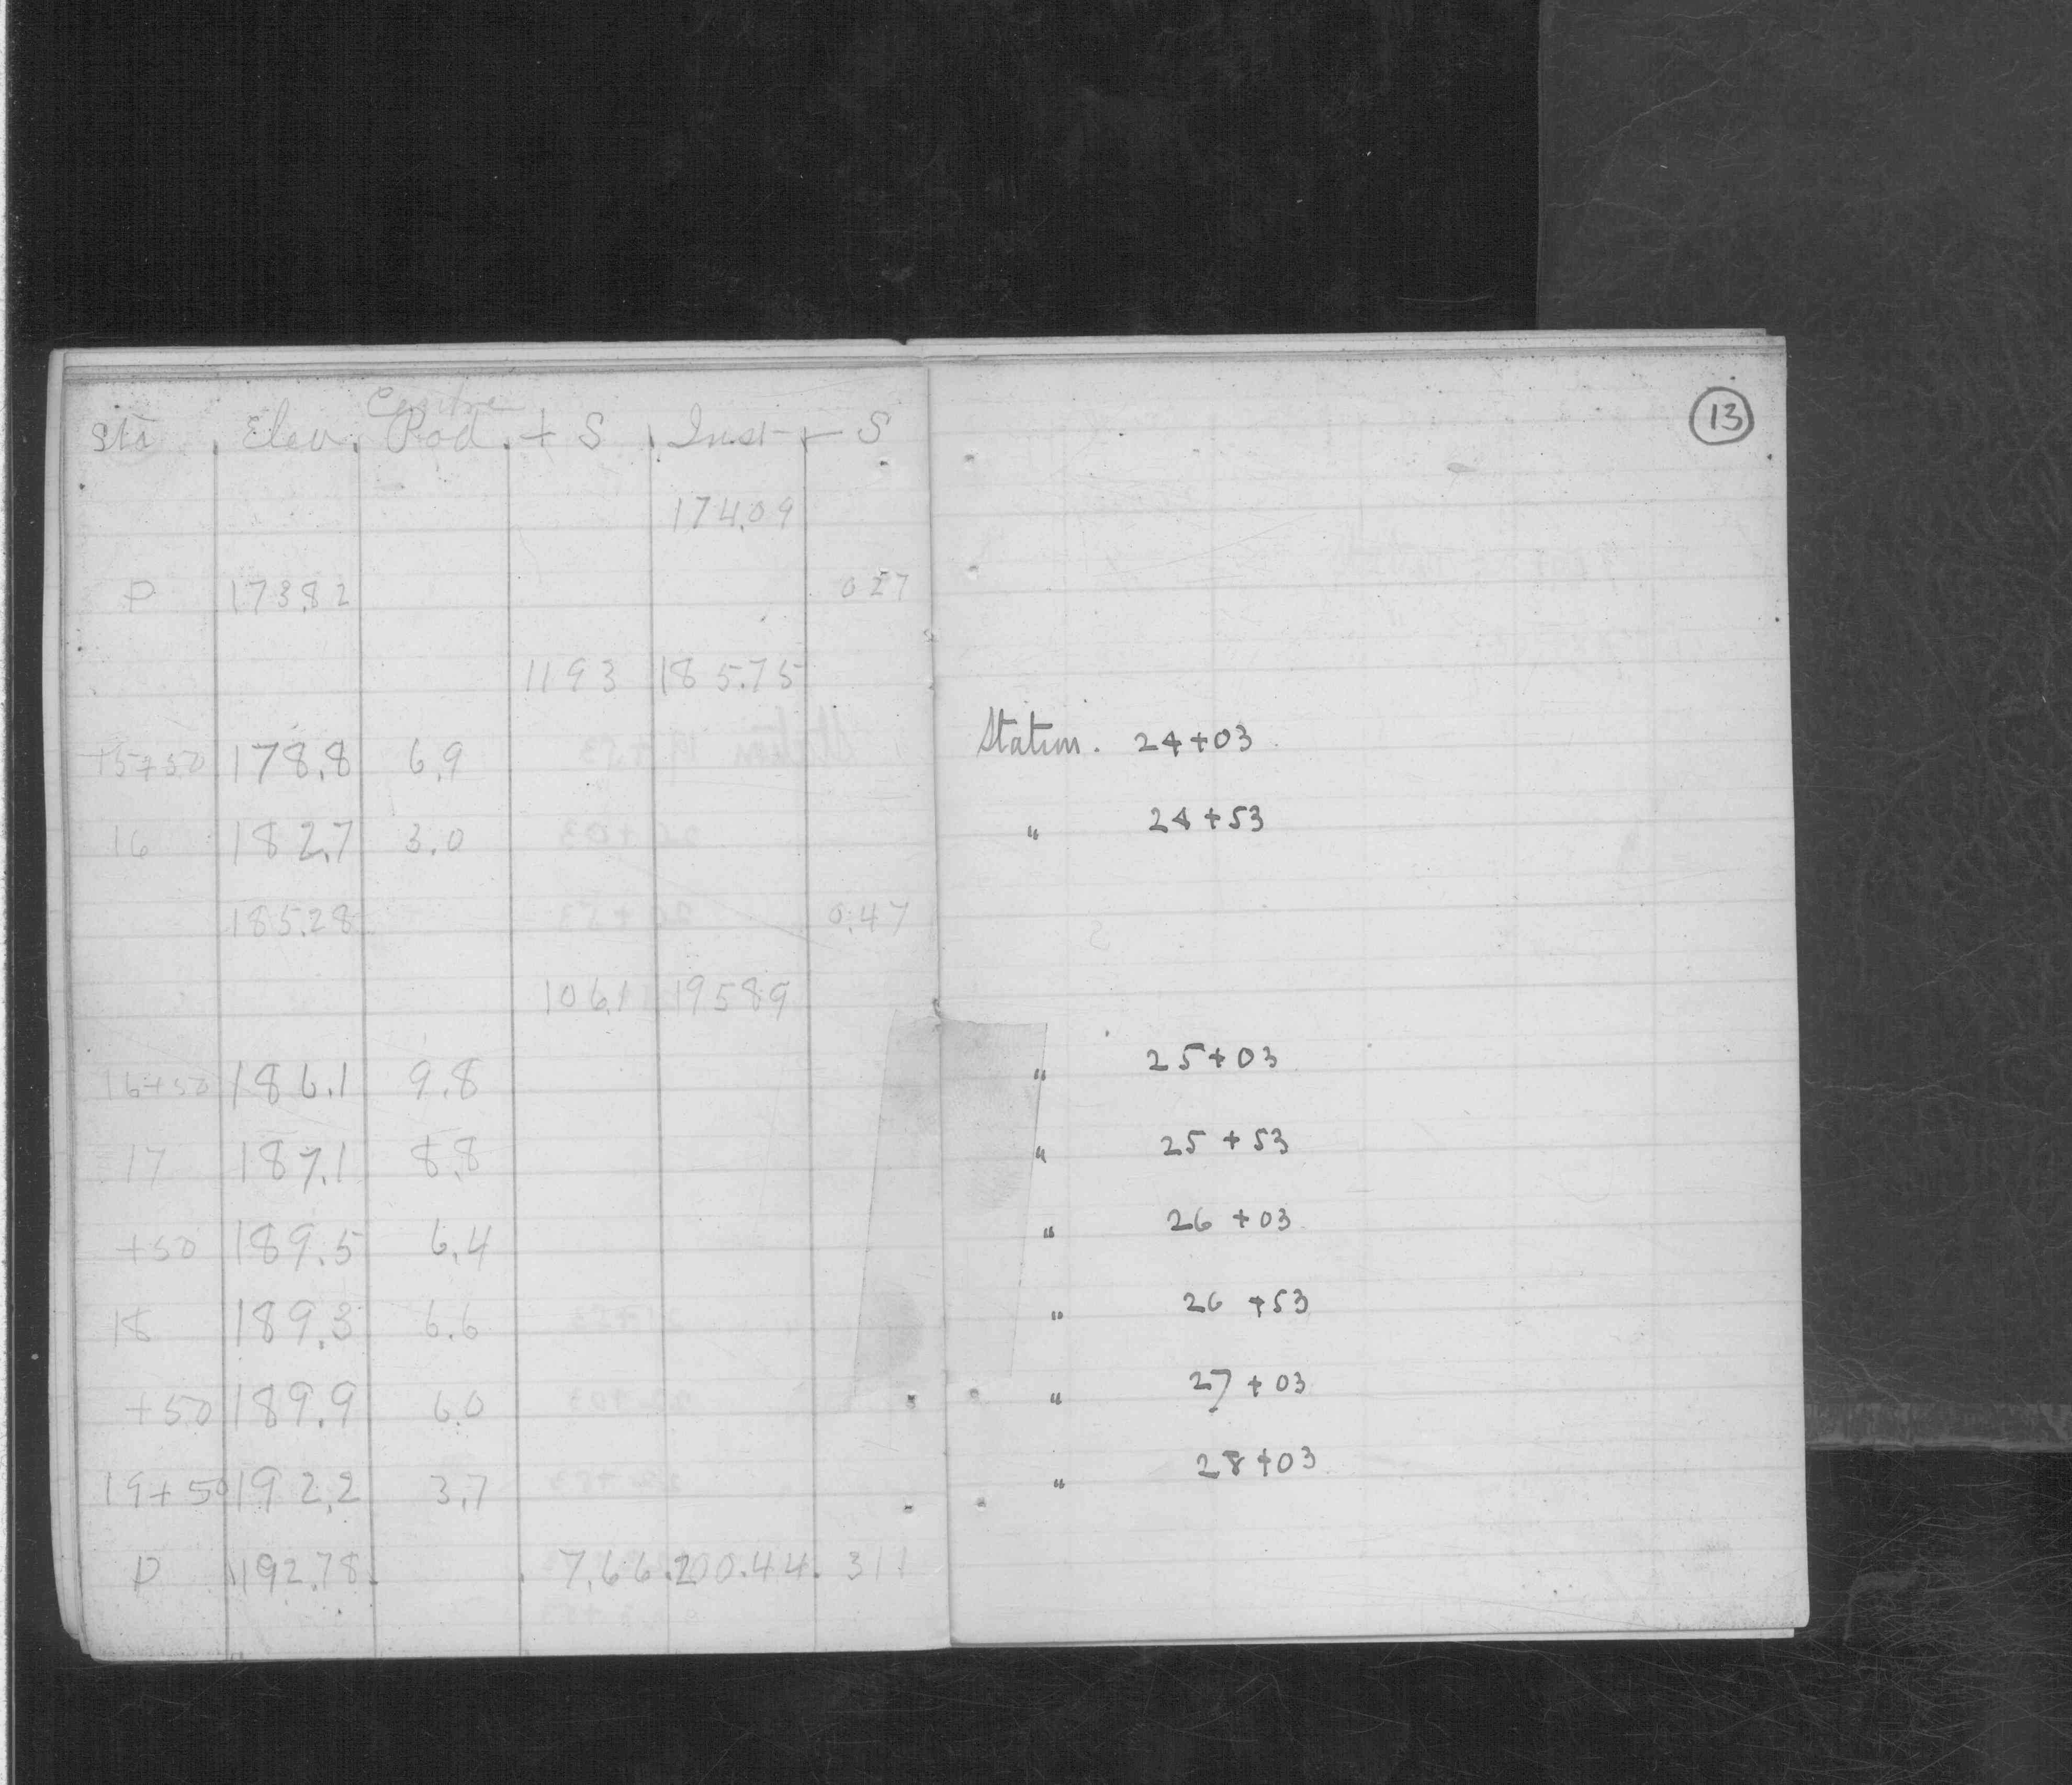 13
Centre
Sta Elev. Rod + S Inst - S
174.09
P 173.82 0 27
11 93 185.75
15+50 178.8 6.9 Station. 24+03
16 182.7 3.0 " 24+53
185.28 0.47
10 6.1 195 89
16+50 186.1 9.8 " 25+03
17 187.1 8.8 " 25+53
+50 189.5 6.4 " 26+03
18 189.3 6.6 " 26+53
+50 189.9 6.0 " 27+03
19+50 192.2 3.7 " 28+03
P 192.78 7.66 200.44 3 11